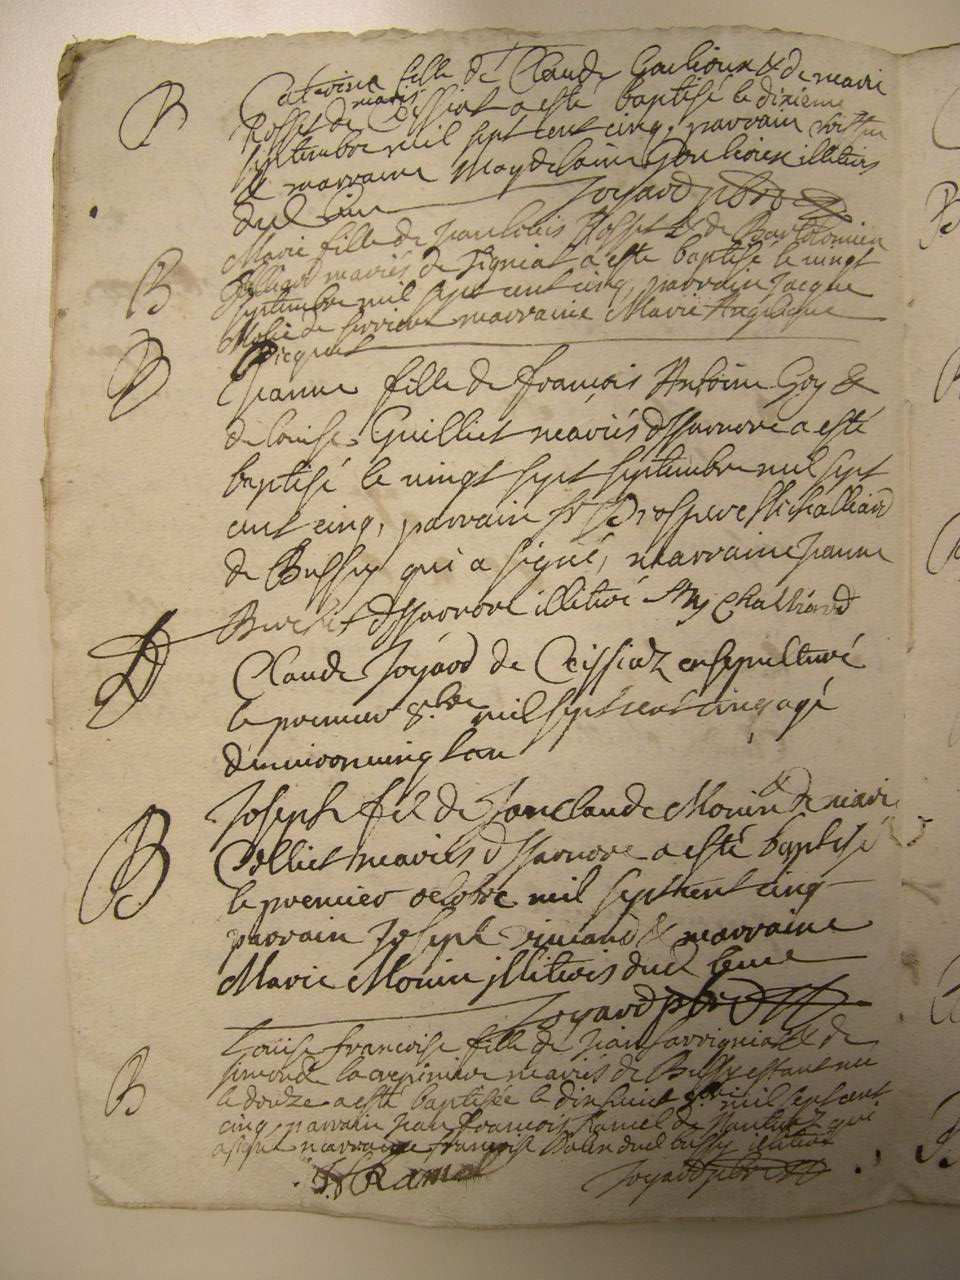 B
Caterine fille de Claude Goulioux & de marie
Rosset mariés de Cessiat a esté baptisé le dixieme
septembre mil sept cent cinq, parrain
& marraine Magdelaine Goulioux illitires
dud. lieu Joyard pbre
B
Marie fille de Jean louis Rosset & de Bartolomien
mariés de Tigniat a esté baptisé le vingt
septembre mil sept cent cinq, parrain Jacque
de marraine Marie Angelique
Picquet
B
Jeanne fille de françois Antoine Goy &
de louise Guilliet mariés dIsarnore a esté
baptisé le vingt sept septembre mil sept
cent cinq, parrain sr Prospere Michalliard
de Bussy qui a signé, marraine Jeanne
dIsarnore illitiré Michalliard
D
Claude Joyard de Ceissiaz ensepulturé
le premier 8.bre mil sept cent cinq agé
denviron vingt an
B
Joseph fil de Jan claude Monin & de marie
Colliet mariés dIsarnore a esté baptisé
le premier octobre mil sept cent cinq
parrain Joseph & marraine
Marie Monin illitirés dud. lieu
Joyard pbre
B
Louise francoise fille de Jean Savigniat & de
simonde la crepiniere mariés de Bussy estant né
le douze a esté baptisée le dixhuict 8bre mil sept cent
cinq parrain Jean francois Ramel de qui
a signé marraine françoise dud. bussy illitiré
Jf Ramel Joyard pbre